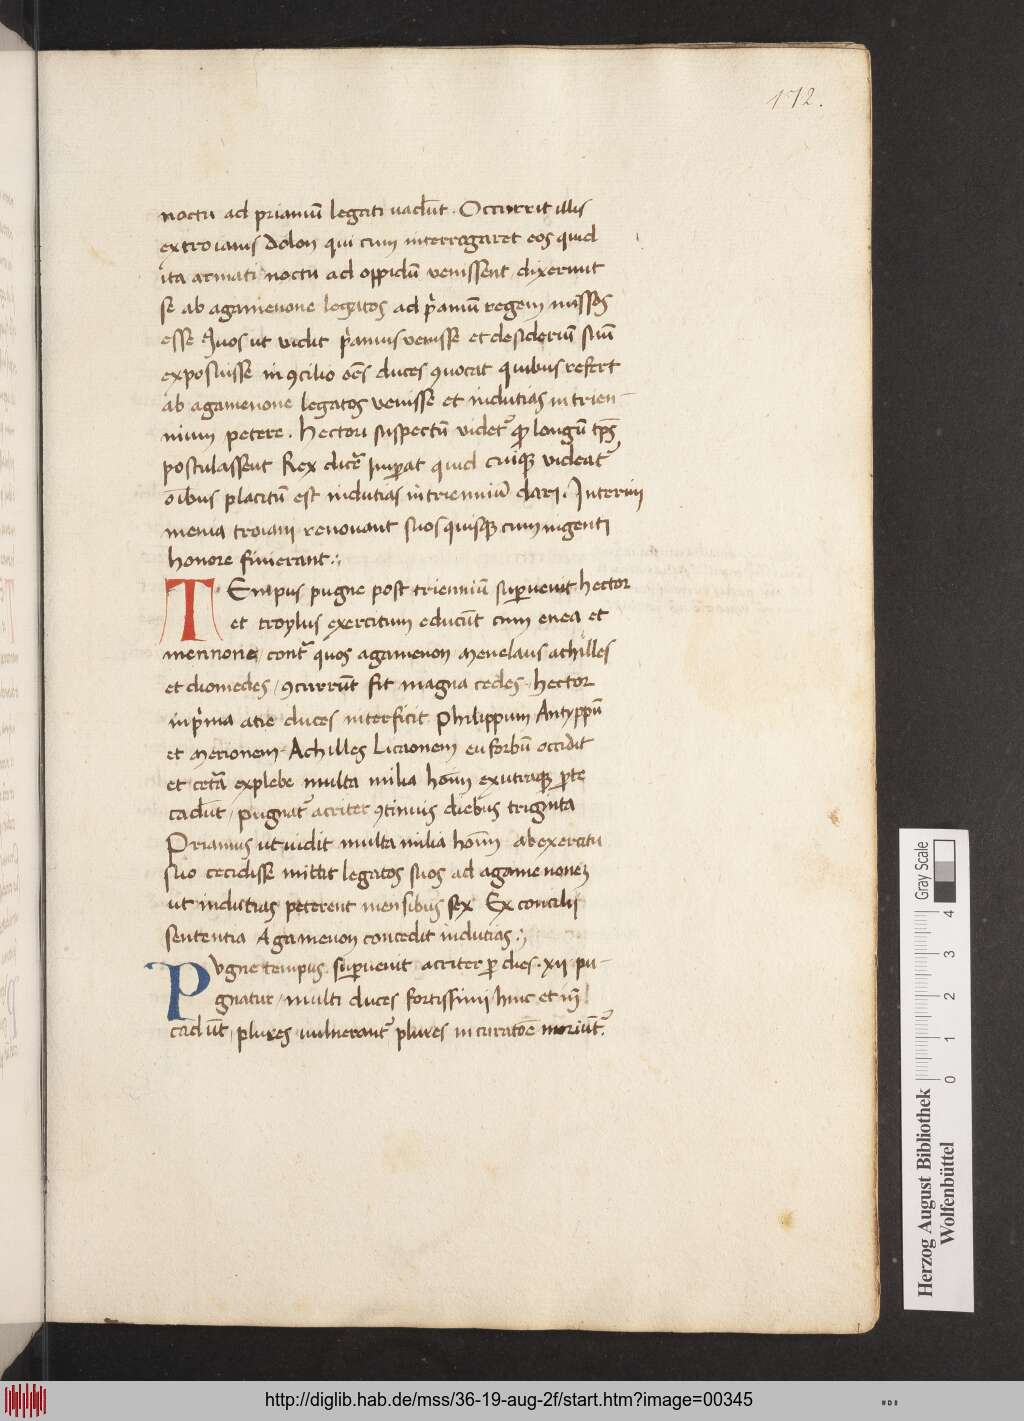 172.
noctu ad priamū legati uadūt. Occurrit illis
ex troianis dolon qui cum interrogaret eos quid
ita armati noctu ad oppidū venissent dixerunt
se ab agamenone legatos ad p̄amū regem missos
esse Quos ut vidit p̄amus venisse et desideriū suū
exposuisse in ꝯcilio oēs duces ꝯuocat quibus refert
ab agamenone legatos venisse et indutias in trien-
nium petere. hectori suspectū videt̄ ꝙ longū tp̄s
postulassent Rex dicē̄ imꝑat quid cuiqꝫ videat̄
oībus placitū est indutias in trienniū dari. Interim
menia troiani renouant suos quisqꝫ cum ingenti
honore finierant.
TEmpus pugne post trienniū suꝑuenit hector
et troylus exercitum educūt cum enea et
mennone, cont̄ quos agamenon menelaus achilles
et diomedes, ꝯcurrūt fit magna cedes, hector
in p̄ma acie duces interficit philippum Antyppū
et merionem. Achilles Licaonem euforbū occidit
et cet̄a ex plebe multa milia hoīm ex utraqꝫ ꝑte
cadūt, pugnat̄ acriter ꝯtinuis diebus triginta
Priamus ut uidit multa milia hoīm ab exercitu
suo cecidisse mittit legatos suos ad agamenonem
ut indutias peterent mensibus sex Ex concilii
sententia Agamenon concedit indutias.
Pugne tempus suꝑuenit acriter ꝑ dies. xii pu-
gnatur, multi duces fortissimi hinc et in̄
cadūt, plures uulnerant̄ plures in curatōe moriūt̄.
Gray Scale
0 1 2 3 4
Herzog August Bibliothek
Wolfenbüttel
http://diglib.hab.de/mss/36-19-aug-2f/start.htm?image=00345